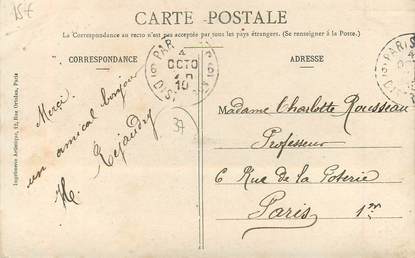 15€
CARTE POSTALE
La Correspondance au recto n'est pas acceptée par tous les pays étrangers. (Se renseigner à la Poste.)
CORRESPONDANCE
ADRESSE
Merci
un amical bonjour
H.
37
PARIS
OCTO
10
Madame Charlotte Rousseau
Professeur
6 Rue de la Poterie
Paris 1er
PARIS
Imprimerie Artistique, Paris